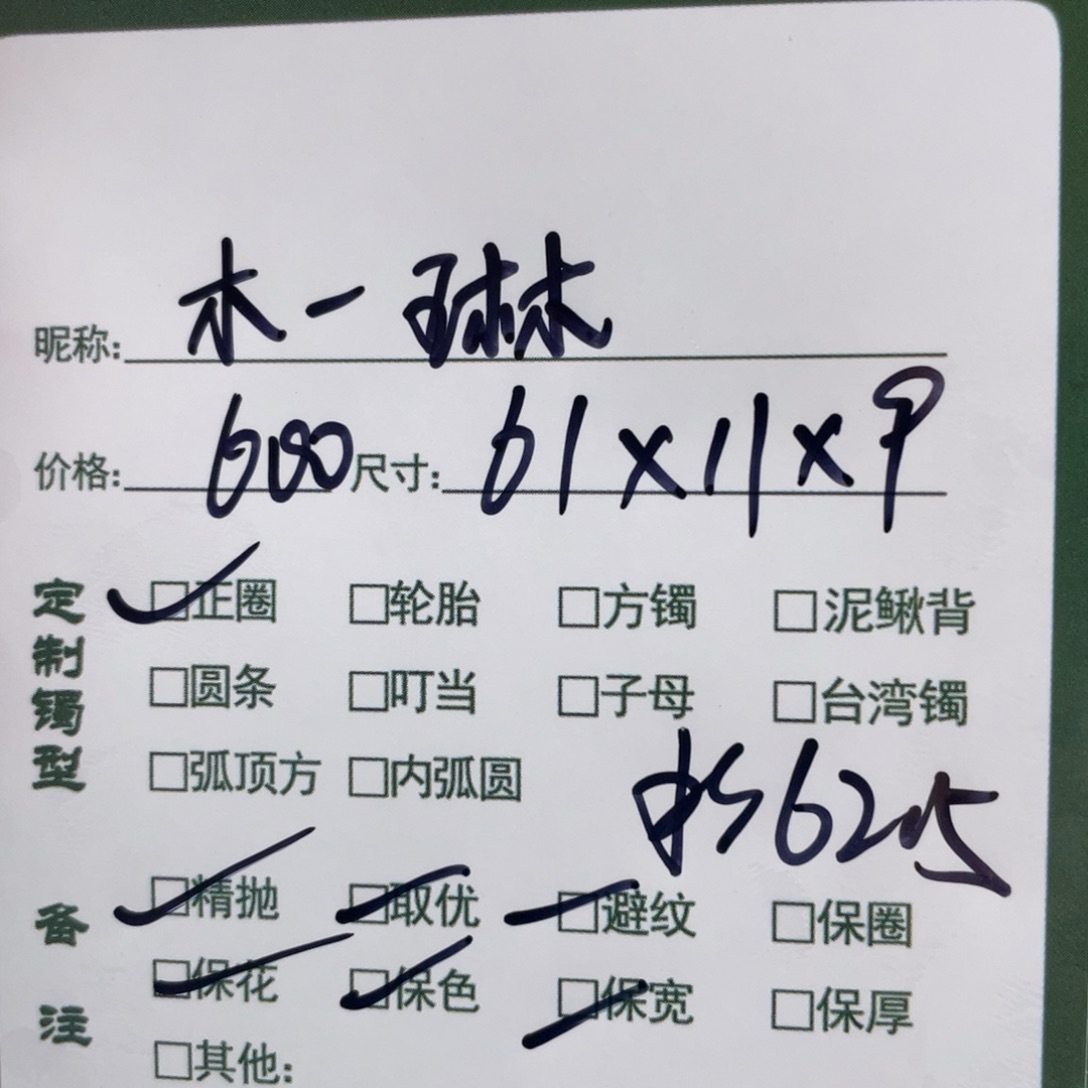 昵称: 木一琳
价格: 680 尺寸: 61×11×9
定制镯型
☑正圈 □轮胎 □方镯 □泥鳅背
□圆条 □叮当 □子母 □台湾镯
□弧顶方 □内弧圆
62.5
备注
☑精抛 ☑取优 ☑避纹 □保圈
☑保花 ☑保色 ☑保宽 □保厚
□其他: